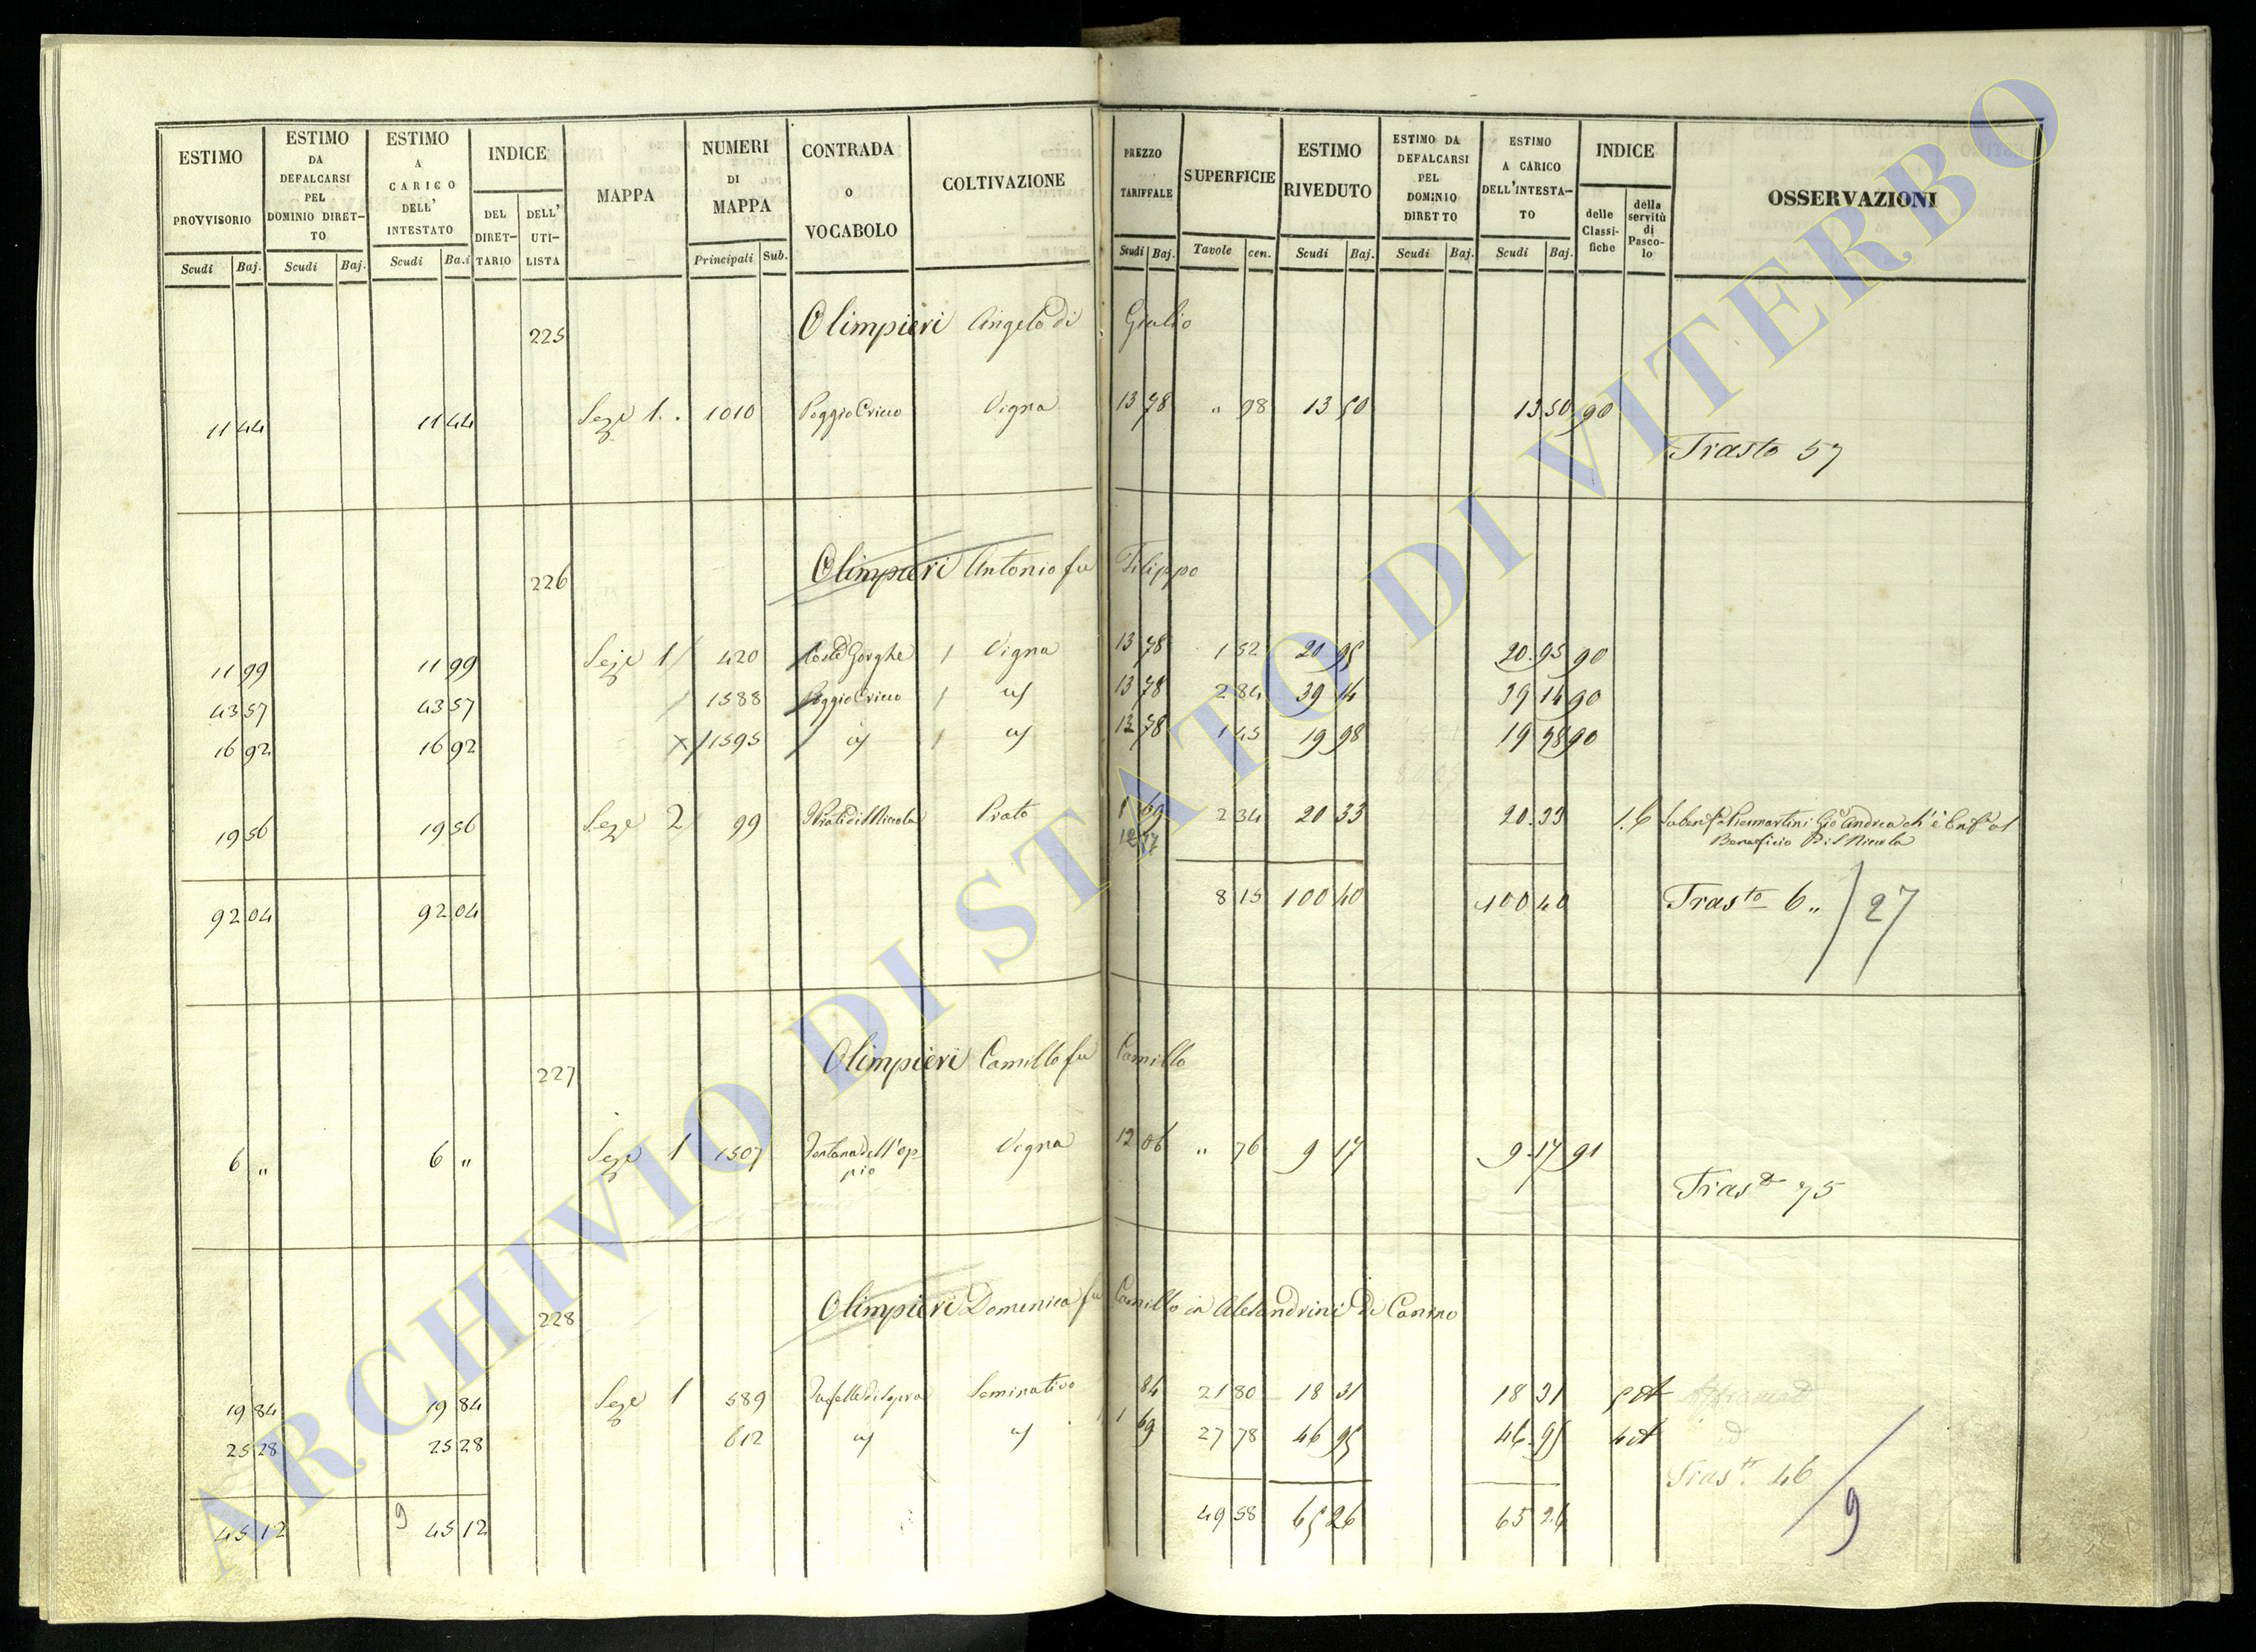 ESTIMO PROVVISORIO Scudi Baj.
ESTIMO DA DEFALCARSI PEL DOMINIO DIRET-TO Scudi Baj.
ESTIMO A CARICO DELL' INTESTATO Scudi Ba.i
INDICE DEL DIRET-TARIO DELL' UTI-LISTA
MAPPA
NUMERI DI MAPPA Principali Sub.
CONTRADA o VOCABOLO
COLTIVAZIONE
PREZZO TARIFFALE Scudi Baj.
SUPERFICIE Tavole cen.
ESTIMO RIVEDUTO Scudi Baj.
ESTIMO DA DEFALCARSI PEL DOMINIO DIRETTO Scudi Baj.
ESTIMO A CARICO DELL'INTESTA-TO Scudi Baj.
INDICE delle Classi-fiche della servitù di Pasco-lo
OSSERVAZIONI
225 Olimpieri Angelo di Giulio
11 44 11 44 Seze 1. 1010 Poggio Cricco Vigna 13 78 " 98 13 50 13 50 90
Trasto 57
226 Olimpieri Antonio fu Filippo
11 99 11 99 Seze 1 420 Gorghe Vigna 13 78 1 52 20 95 20.95 90
43 57 43 57 1588 Poggio Cricco 13 78 2 84 39 14 39 14 90
16 92 16 92 X 1595 13 78 1 45 19 98 19 98 90
19 56 19 56 Seze 2 99 Prato 2 34 20 33 20.33 1.6 Piermartini Gio Andrea
Beneficio Di S Nicola
92 04 92 04 8 15 100 40 100 40 Trasto 6 " / 27
227 Olimpieri Camillo fu Camillo
6 " 6 " Seze 1 1507 Fontana dell'op-
pio Vigna 12 06 " 76 9 17 9.17 91
Trasto 75
228 Olimpieri Domenica fu Camillo in Alesandrini di Canino
19 84 19 84 Seze 1 589 Seminativo 84 21 80 18 31 18 31
25 28 25 28 612 1 69 27 78 46 95 46.95
Trasto 46
45 12 9 45 12 49 58 65 26 65 26 / 9
ARCHIVIO DI STATO DI VITERBO